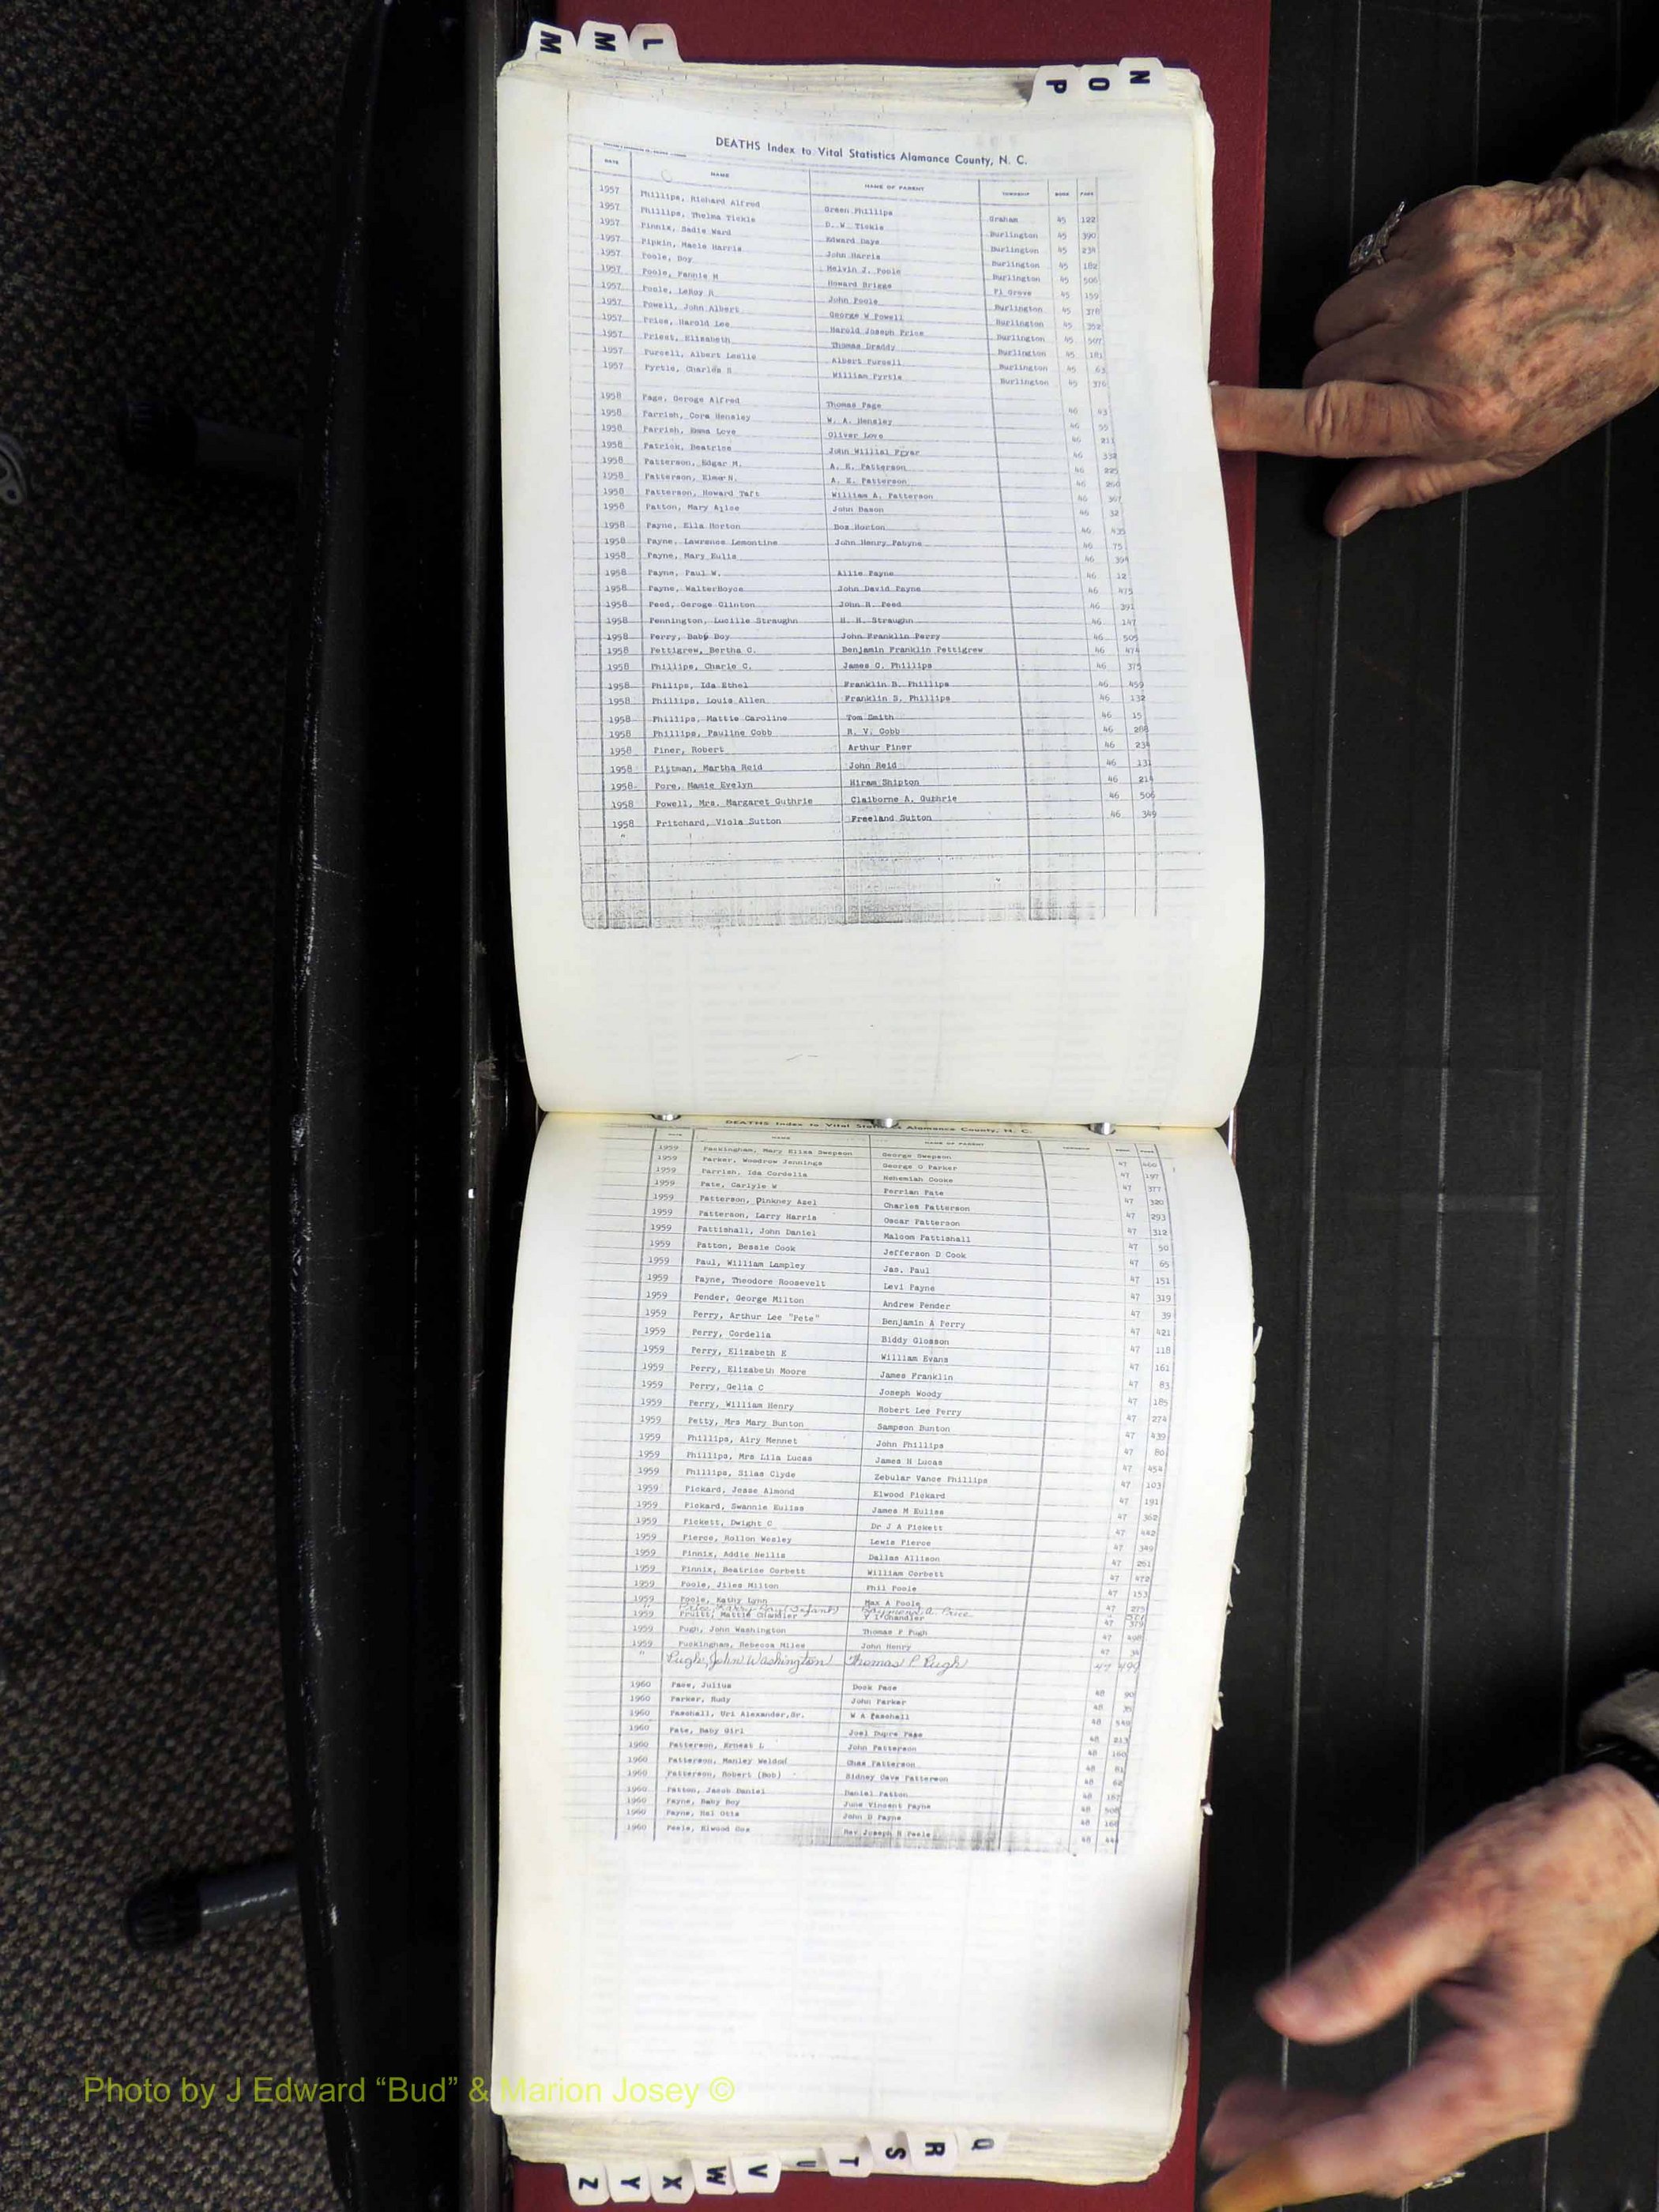 M M L
P O N
DEATHS Index to Vital Statistics Alamance County, N. C.
DATE NAME NAME OF PARENT TOWNSHIP BOOK PAGE
1957 Phillips, Richard Alfred Green Phillips Graham 45 122
1957 Phillips, Thelma Tickle D. W. Tickle Burlington 45 390
1957 Pinnix, Sadie Ward Edward Daye Burlington 45 234
1957 Pipkin, Macie Harris John Harris Burlington 45 182
1957 Poole, Boy Melvin J. Poole Burlington 45 506
1957 Poole, Fannie M Howard Briggs Pl Grove 45 159
1957 Poole, LeRoy R John Poole Burlington 45 378
1957 Powell, John Albert George W Powell Burlington 45 352
1957 Price, Harold Lee Harold Joseph Price Burlington 45 507
1957 Priest, Elizabeth Thomas Draddy Burlington 45 181
1957 Purcell, Albert Leslie Albert Purcell Burlington 45 63
1957 Pyrtle, Charles S William Pyrtle Burlington 45 376
1958 Page, Geroge Alfred Thomas Page 46 43
1958 Parrish, Cora Hensley W. A. Hensley 46 55
1958 Parrish, Emma Love Oliver Love 46 211
1958 Patrick, Beatrice John Pryar 46 332
1958 Patterson, Edgar M. A. E. Patterson 46 225
1958 Patterson, Elmer N. A. E. Patterson 46 260
1958 Patterson, Howard Taft William A. Patterson 46 367
1958 Patton, Mary Ailee John Bason 46 32
1958 Payne, Ella Horton Doz Horton 46 435
1958 Payne, Lawrence Lemontine John Henry Pabyne 46 75
1958 Payne, Mary Eulis 46 394
1958 Payne, Paul W. Allie Payne 46 12
1958 Payne, WalterBoyce John David Payne 46 475
1958 Peed, Geroge Clinton John H. Peed 46 391
1958 Pennington, Lucille Straughn H. H. Straughn 46 147
1958 Perry, Baby Boy John Franklin Perry 46 505
1958 Pettigrew, Bertha C. Benjamin Franklin Pettigrew 46 474
1958 Phillips, Charle C. James C. Phillips 46 375
1958 Philips, Ida Ethel Franklin B. Phillips 46 459
1958 Phillips, Louis Allen Franklin S. Phillips 46 132
1958 Phillips, Mattie Caroline Tom Smith 46 15
1958 Phillips, Pauline Cobb R. V. Cobb 46 288
1958 Piner, Robert Arthur Piner 46 234
1958 Pittman, Martha Reid John Reid 46 13
1958 Pore, Mamie Evelyn Hiram Shipton 46 214
1958 Powell, Mrs. Margaret Guthrie Claiborne A. Guthrie 46 506
1958 Pritchard, Viola Sutton Freeland Sutton 46 349
"
DEATHS Index to Vital Statistics Alamance County, N. C.
DATE NAME NAME OF PARENT
1959 Packingham, Mary Eliza Swepson George Swepson 47 460
1959 Parker, Woodrow Jennings George O Parker 47 197
1959 Parrish, Ida Cordelia Nehemiah Cooke 47 377
1959 Pate, Carlyle W Perrian Pate 47 320
1959 Patterson, Pinkney Azel Charles Patterson 47 293
1959 Patterson, Larry Harris Oscar Patterson 47 312
1959 Pattishall, John Daniel Malcom Pattishall 47 50
1959 Patton, Bessie Cook Jefferson D Cook 47 65
1959 Paul, William Lampley Jas. Paul 47 151
1959 Payne, Theodore Roosevelt Levi Payne 47 319
1959 Pender, George Milton Andrew Pender 47 39
1959 Perry, Arthur Lee "Pete" Benjamin A Perry 47 421
1959 Perry, Cordelia Biddy Glosson 47 118
1959 Perry, Elizabeth E William Evans 47 161
1959 Perry, Elizabeth Moore James Franklin 47 83
1959 Perry, Gelia C Joseph Woody 47 185
1959 Perry, William Henry Robert Lee Perry 47 274
1959 Petty, Mrs Mary Bunton Sampson Bunton 47 439
1959 Phillips, Airy Mennet John Phillips 47 80
1959 Phillips, Mrs Lila Lucas James H Lucas 47 454
1959 Phillips, Silas Clyde Zebular Vance Phillips 47 103
1959 Pickard, Jesse Almond Elwood Pickard 47 191
1959 Pickard, Swannie Euliss James M Euliss 47 362
1959 Pickett, Dwight C Dr J A Pickett 47 442
1959 Pierce, Rollon Wesley Lewis Pierce 47 349
1959 Pinnix, Addie Nellis Dallas Allison 47 251
1959 Pinnix, Beatrice Corbett William Corbett 47 472
1959 Poole, Jiles Milton Phil Poole 47 153
1959 Poole, Kathy Lynn Max A Poole 47 275
" Price, (Infant) Raymond A. Price "
1959 Pruitt, Mattie Chandler Y I Chandler 47 379
1959 Pugh, John Washington Thomas P Pugh 47 498
1959 Puckingham, Rebecca Miles John Henry 47 34
" Pugh, John Washington Thomas P. Pugh 47 499
1960 Pace, Julius Dock Pace 48 90
1960 Parker, Rudy John Parker 48 35
1960 Paschall, Uri Alexander,Sr. W A Paschall 48 549
1960 Pate, Baby Girl Joel Dupre Pate 48 213
1960 Patterson, Ernest L John Patterson 48 160
1960 Patterson, Manley Weldon Chas Patterson 48 81
1960 Patterson, Robert (Bob) Sidney Cave Patterson 48 62
1960 Patton, Jacob Daniel Daniel Patton 48 157
1960 Payne, Baby Boy June Vincent Payne 48 508
1960 Payne, Hal Otis John D Payne 48 168
1960 Peele, Elwood Cox Rev Joseph H Peele 48 444
Photo by J Edward “Bud” & Marion Josey ©
Z Y X W V U T S R Q